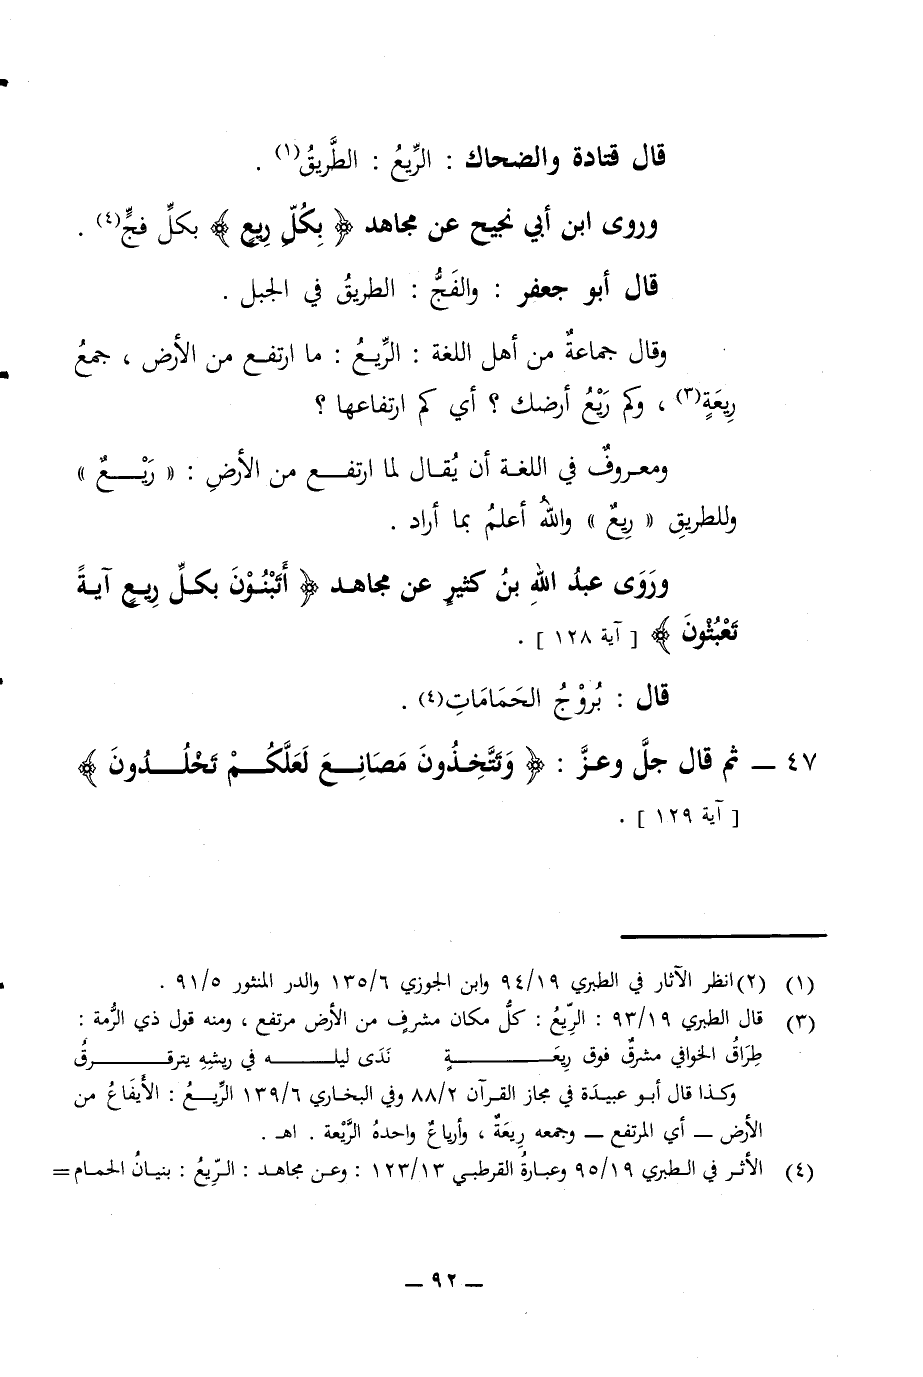 قال قتادة والضحاك : الرِّيعُ : الطَّريقُ(١) .
وروى ابن أبي نجيح عن مجاهد ﴿ بِكُلّ رِيعٍ ﴾ بكلِّ فجٍّ(٤) .
قال أبو جعفر : والفَجُّ : الطريقُ في الجبل .
وقال جماعةٌ من أهل اللغة : الرِّيعُ : ما ارتفع من الأرض ، جمعُ
رِيعَةٍ(٣) ، وكم رَيْعُ أرضك ؟ أي كم ارتفاعها ؟
ومعروفٌ في اللغة أن يُقال لما ارتفع من الأرضِ : « رَيْعٌ »
وللطريقِ « رِيعٌ » واللهُ أعلمُ بما أراد .
ورَوَى عبدُ اللهِ بنُ كثيرٍ عن مجاهد ﴿ أَتَبْنُوْنَ بكلِّ رِيعٍ آيةً
تَعْبَثُونَ ﴾ [ آية ١٢٨ ] .
قال : بُرُوْجُ الحَمَامَاتِ(٤) .
٤٧ ـ ثم قال جلَّ وعزَّ : ﴿ وَتَتَّخِذُونَ مَصَانِعَ لَعَلَّكُمْ تَخْلُدُونَ ﴾
[ آية ١٢٩ ] .
(١) (٢) انظر الآثار في الطبري ٩٤/١٩ وابن الجوزي ١٣٥/٦ والدر المنثور ٩١/٥ .
(٣) قال الطبري ٩٣/١٩ : الرِّيعُ : كلُّ مكان مشرفٍ من الأرض مرتفع ، ومنه قول ذي الرُّمة :
طِرَاقُ الخوافي مشرقٌ فوق رِيعَةٍ نَدَى ليله في ريشِهِ يترقرقُ
وكذا قال أبو عبيدَة في مجاز القرآن ٨٨/٢ وفي البخاري ١٣٩/٦ الرِّيعُ : الأَيفَاعُ من
الأرض ـ أي المرتفع ـ وجمعه رِيعَةٌ ، وأرياعٌ واحدهُ الرَّيْعة . اهـ .
(٤) الأثر في الطبري ٩٥/١٩ وعبارةُ القرطبي ١٢٣/١٣ : وعن مجاهد : الرِّيعُ : بنيانُ الحمام=
ـ ٩٢ ـ